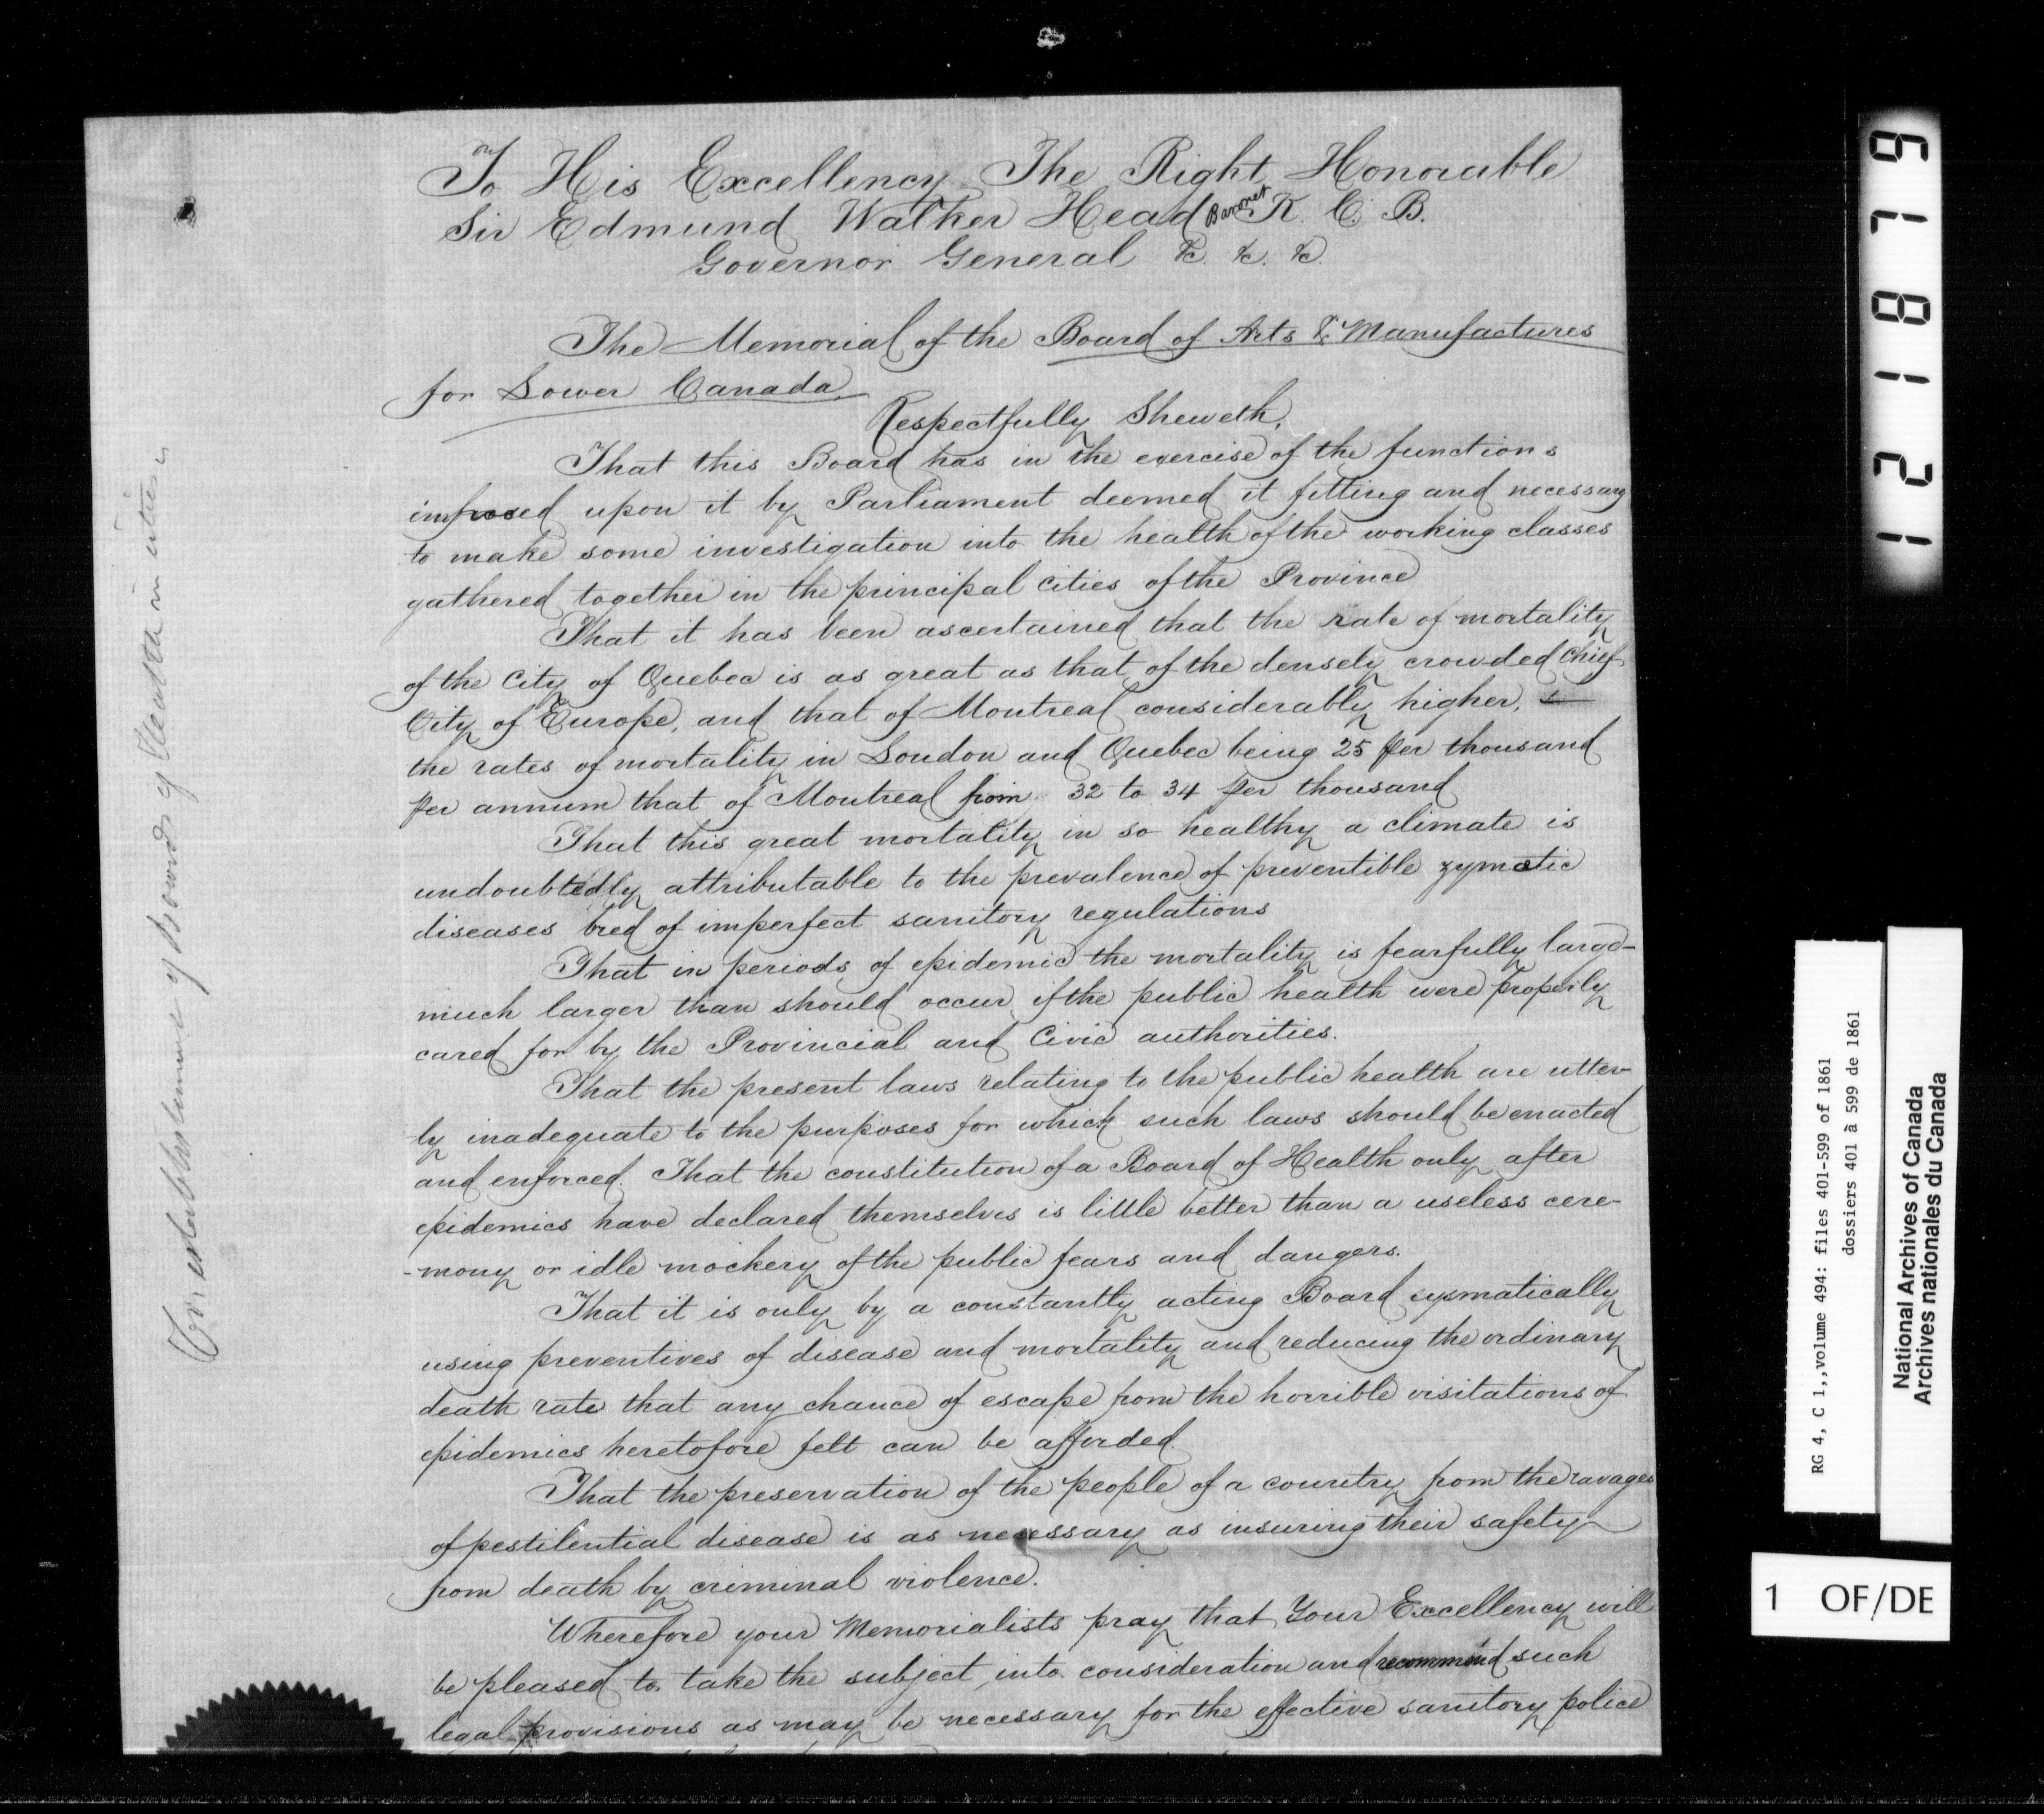 To His Excellency The Right Honorable
Sir Edmund Walker Head Baronet K. C. B.
Governor General &c. &c. &c.
The Memorial of the Board of Arts & Manufactures
for Lower Canada
Respectfully Sheweth,
That this Board has in the exercise of the functions
imposed upon it by Parliament deemed it fitting and necessary
to make some investigation into the health of the working classes
gathered together in the principal Cities of the Province
That it has been ascertained that the rate of mortality
of the City of Quebec is as great as that of the densely crowded Chief
City of Europe, and that of Montreal considerably higher,
the rates of mortality in London and Quebec being 25 per thousand
per annum that of Montreal from 32 to 34 per thousand
That this great mortality in so healthy a climate is
undoubtedly attributable to the prevalence of preventible zymotic
diseases bred of imperfect sanitory regulations
That in periods of epidemic the mortality is fearfully large-
much larger than should occur if the public health were properly
cared for by the Provincial and Civic authorities.
That the present laws relating to the public health are utter-
ly inadequate to the purposes for which such laws should be enacted
and enforced. That the constitution of a Board of Health only after
epidemics have declared themselves is little better than a useless cere-
-mony or idle mockery of the public fears and dangers.
That it is only by a constantly acting Board sysmatically
using preventives of disease and mortality and reducing the ordinary
death rate that any chance of escape from the horrible visitations of
epidemics heretofore felt can be afforded.
That the preservation of the people of a country from the ravages
of pestilential disease is as necessary as insuring their safety
from death by criminal violence.
Wherefore your Memorialists pray that Your Excellency will
be pleased to take the subject into consideration and recommend such
legal provisions as may be necessary for the effective sanitory police
For establishment of Boards of Health in cities
121819
RG 4, C 1,,volume 494: files 401-599 of 1861
dossiers 401 à 599 de 1861
National Archives of Canada
Archives nationales du Canada
1 OF/DE